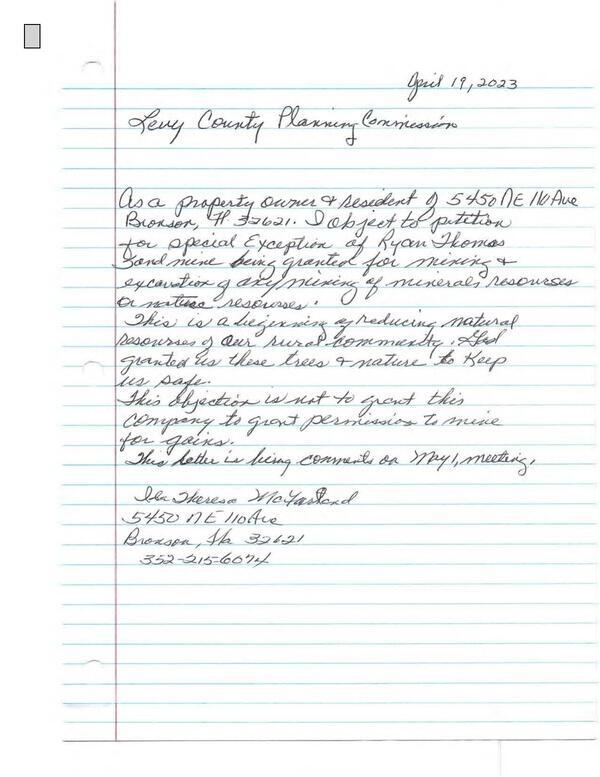 April 19, 2023
Levy County Planning Commission
As a property owner & resident of 5450 NE 110 Ave
Bronson, Fl 32621. I object to petition
for special Exception of Ryan Thomas
Sand mine being granted for mining &
excavation of any mining of minerals resources
or nature resourses.
This is a beginning of reducing natural
resourses of our rural community. God
granted us these trees & nature to keep
us safe.
This objection is not to grant this
company to grant permission to mine
for gains.
This letter is being comments on May 1, meeting.
Theresa McFarland
5450 NE 110 Ave
Bronson, Fla 32621
352-215-6074